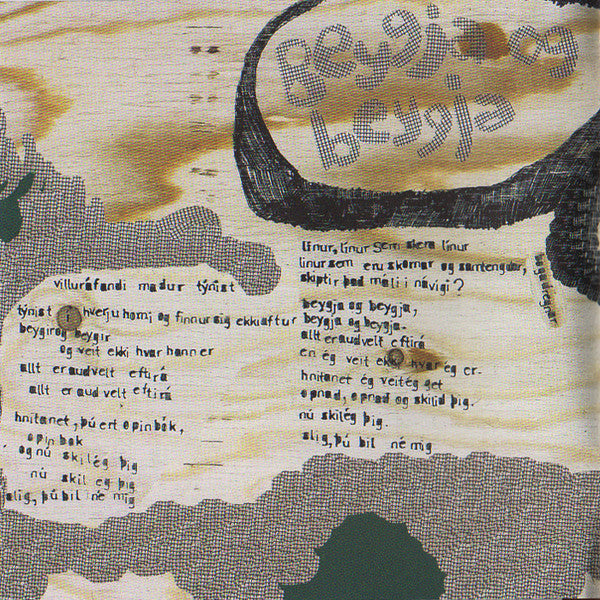 Beygja og
beygja
villuráfandi maður týnist
týnist í hverju horni og finnur sig ekki aftur
beygir og beygir
og veit ekki hvar hann er
allt er auðvelt eftirá
allt er auðvelt eftirá
hnitanet, þú ert opin bók,
opin bók
og nú skil ég þig
nú skil ég þig
línur, línur sem skera línur
línur sem eru skornar og samtengdar,
skiptir það máli í návígi?
beygja og beygja,
beygja og beygja.
allt er auðvelt eftirá
en ég veit ekki hvar ég er.
hnitanet ég veit ég get
opnað, opnað og skilið þig.
nú skil ég þig.